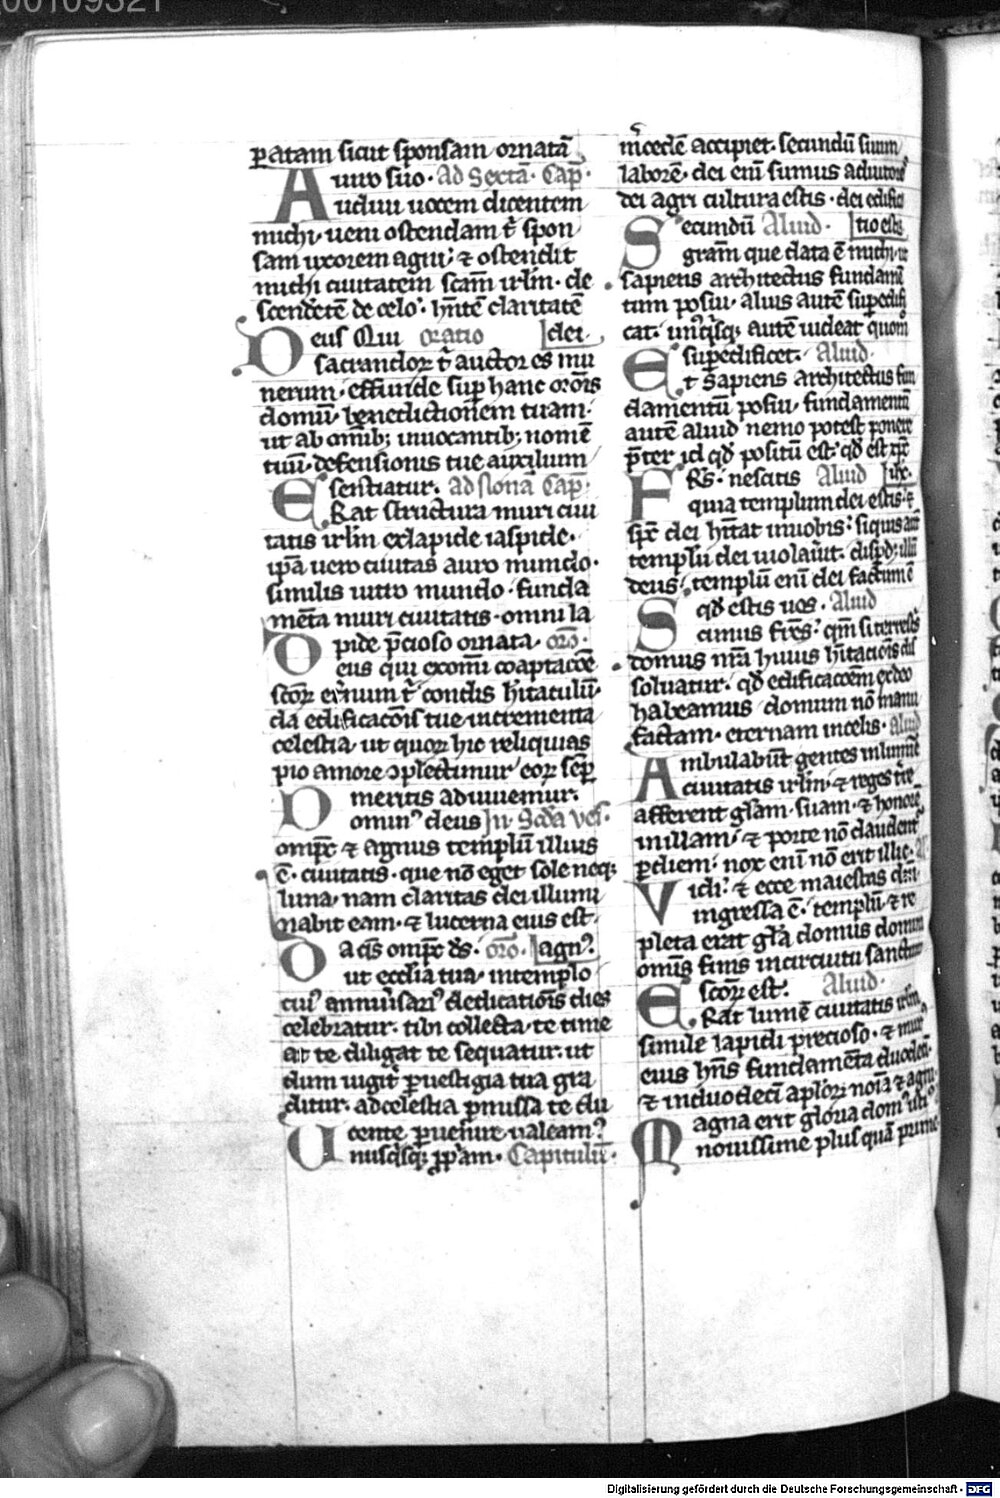 00109321
ꝑatam sicut sponsam ornatā
A uiro suo· Ad Sectā· Cap̄·
udiui uocem dicentem
michi· ueni ostendam t̄ spon
sam uxorem agni· ⁊ ostendit
michi ciuitatem scām irl̄m· de
scendētē de celo· hn̄tē claritatē
D eus Qui oratio dei·
sacrandoꝝ t̄ auctor es mu
nerum· effunde sup hanc orōis
domū benedictionem tuam·
ut ab omīb; inuocantib; nomē
tuū· defensionis tue auxilium
E sentiatur· ad nonā Cap̄·
Rat structura muri ciui
tatis irl̄m ex lapide iaspide·
ip̄a uero ciuitas auro mundo·
similis uitro mundo· funda
mēta muri ciuitatis· omni la
D pide p̄cioso ornata· orō·
eus qui ex omī coaptacōe
scōꝝ et̄num t̄ condis hītaculū·
da edificacōis tue incrementa
celestia· ut quoꝝ hic reliquias
pio amore ↄplectimur eoꝝ sēp
D meritis adiuuemur·
omin⁹ deus In· Scd̄a ves·
omp̄c ⁊ agnus templū illius
ē· ciuitatis· que nō eget sole neq;
luna· nam claritas dei illumi
nabit eam· ⁊ lucerna eius est·
D a q̄s omp̄c d̄s· orō· agn⁹·
ut ecclīa tua· in templo
cui⁹ anniu͛sari⁹ dedicatiōis dies
celebratur· tibi collecta· te time
at te diligat te sequatur· ut
dum iugit̄ ꝑ uestigia tua gra
ditur· ad celestia ꝑmissa te du
U cente ꝑuenire ualeam⁹·
nusq̄sq; ꝓp̄am· Capitulū·
m̄cedē accipiet· secundū suum
laborē· dei enī sumus adiutores
dei agri cultura estis· dei edifica
S ecundū Aliud· tio estis
gram̄ que data ē michi· ut
sapiens architectus fundamē
tum posui· alius autē supedifi
cat· unq̄sq; autē uideat quom̄
E supedificet· Aliud·
t Sapiens architectus fun
damentū posui· fundamentū
autē aliud nemo potest ponere
p̄ter id qd̄ positū est· qd̄ est xp̄c
F Rs̄· nescitis Aliud ih̄c·
quia templum dei estis· ⁊
sp̄c dei hītat in uobis· siquis aūt
templū dei uiolau͛it· dispd; illū
deus· templū enī dei sanctum ē
S qd̄ estis uos· Aliud
cimus fr̄es· qm̄ si terrestis
domus nr̄a huius hītaciōis dis
soluatur· qd̄ edificacōem ex deo
habeamus domum nō manu
factam· eternam in celis· Aliud
A mbulabūt gentes in lumine
ciuitatis irl̄m· ⁊ reges t̄re
afferent glam· suam· ⁊ honorē
in illam· ⁊ porte nō claudent
ꝑ diem· nox enī nō erit illic· Al
V idi· ⁊ ecce maiestas dn̄i
ingressa ē· templū· ⁊ re
pleta erat glā domus domini
omīs finis in circuitu sanctum
E scōꝝ est· Aliud·
Rat lumē ciuitatis irl̄m
simile lapidi precioso· ⁊ muri
eius hn̄s fundamēta duodecī·
⁊ in duodecī aplōꝝ noīa ⁊ agni·
M agna erit gloria dom⁹ isti⁹
nouissime plusquā prime
Digitalisierung gefördert durch die Deutsche Forschungsgemeinschaft - DFG